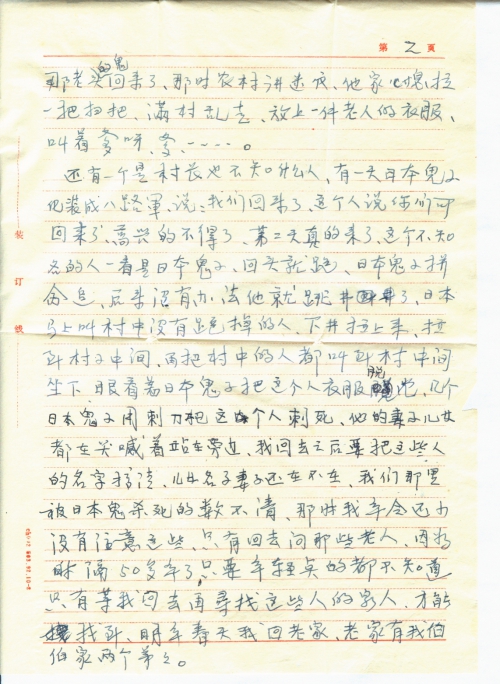 第 2 頁
那老头的鬼回来了、那时农村讲迷信、他家 拉
一把扫把、满村乱走、放上一件老人的衣服、
叫着爹呀、爹、……。
还有一个是村长也不知什么人、有一天日本鬼子
化装成八路軍、说：我们回来了、这个人说你们可
回来了、高兴的不得了、第二天真的来了、这个不知
名的人一看是日本鬼子、回头就跑、日本鬼子拼
命追、后来没有办法他就跳井了、日本
马上叫村中没有跑掉的人、下井拉上来、拉
到村子中间、再把村中的人都叫到村中间
坐下、眼看着日本鬼子把这个人衣服脱 、几个
日本鬼子用刺刀把这个人刺死、他的妻子儿女
都在哭喊着站在旁边、我回去之后要把这些人
的名字搞清、 名子妻子还在不在、我们那里
被日本鬼杀死的数不清、那时我年令还小
没有注意这些、只有回去问那些老人、因为
时隔50多年了、只要年轻点的都不知道
只有等我回去再寻找这些人的家人、才能
找到、明年春天我回老家、老家有我伯
伯家两个弟弟。
装
订
线